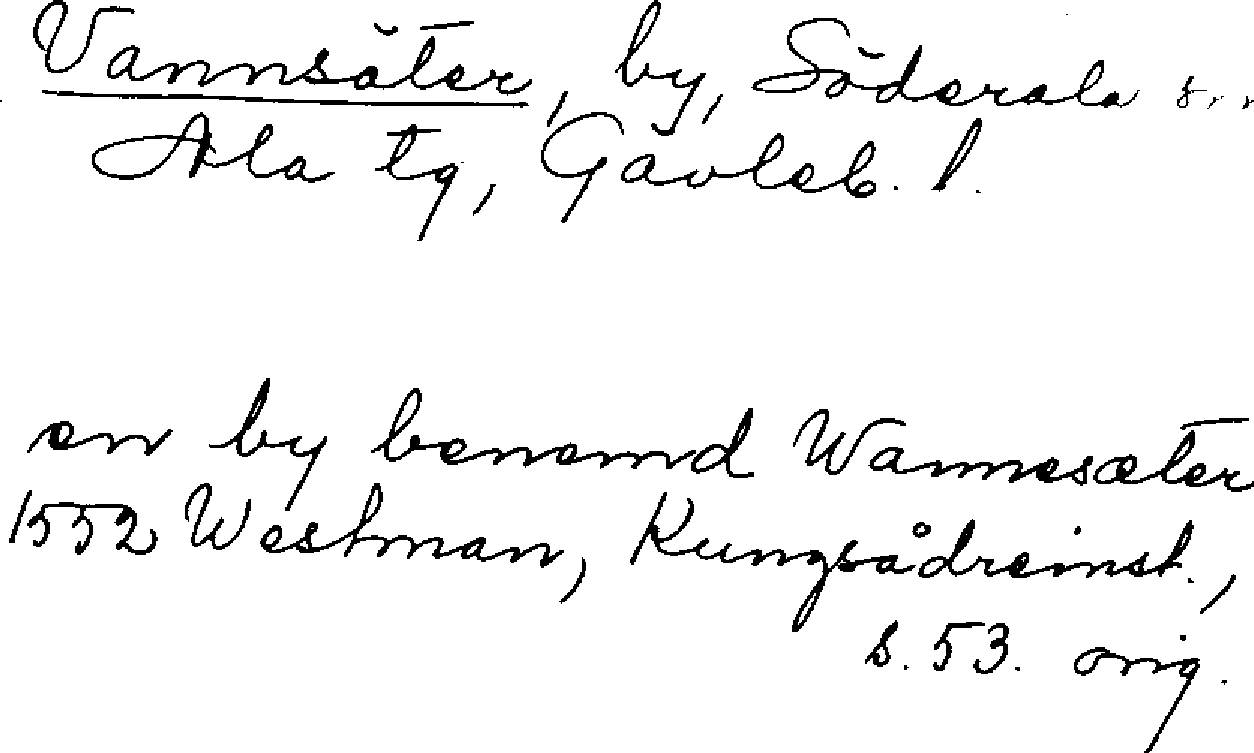 Vannsäter, by, Söderala sn
Ala tg, Gävleb. l.
en by benemd Wannesæter
1552 Westman, Kungsådreinst.,
s. 53. orig.